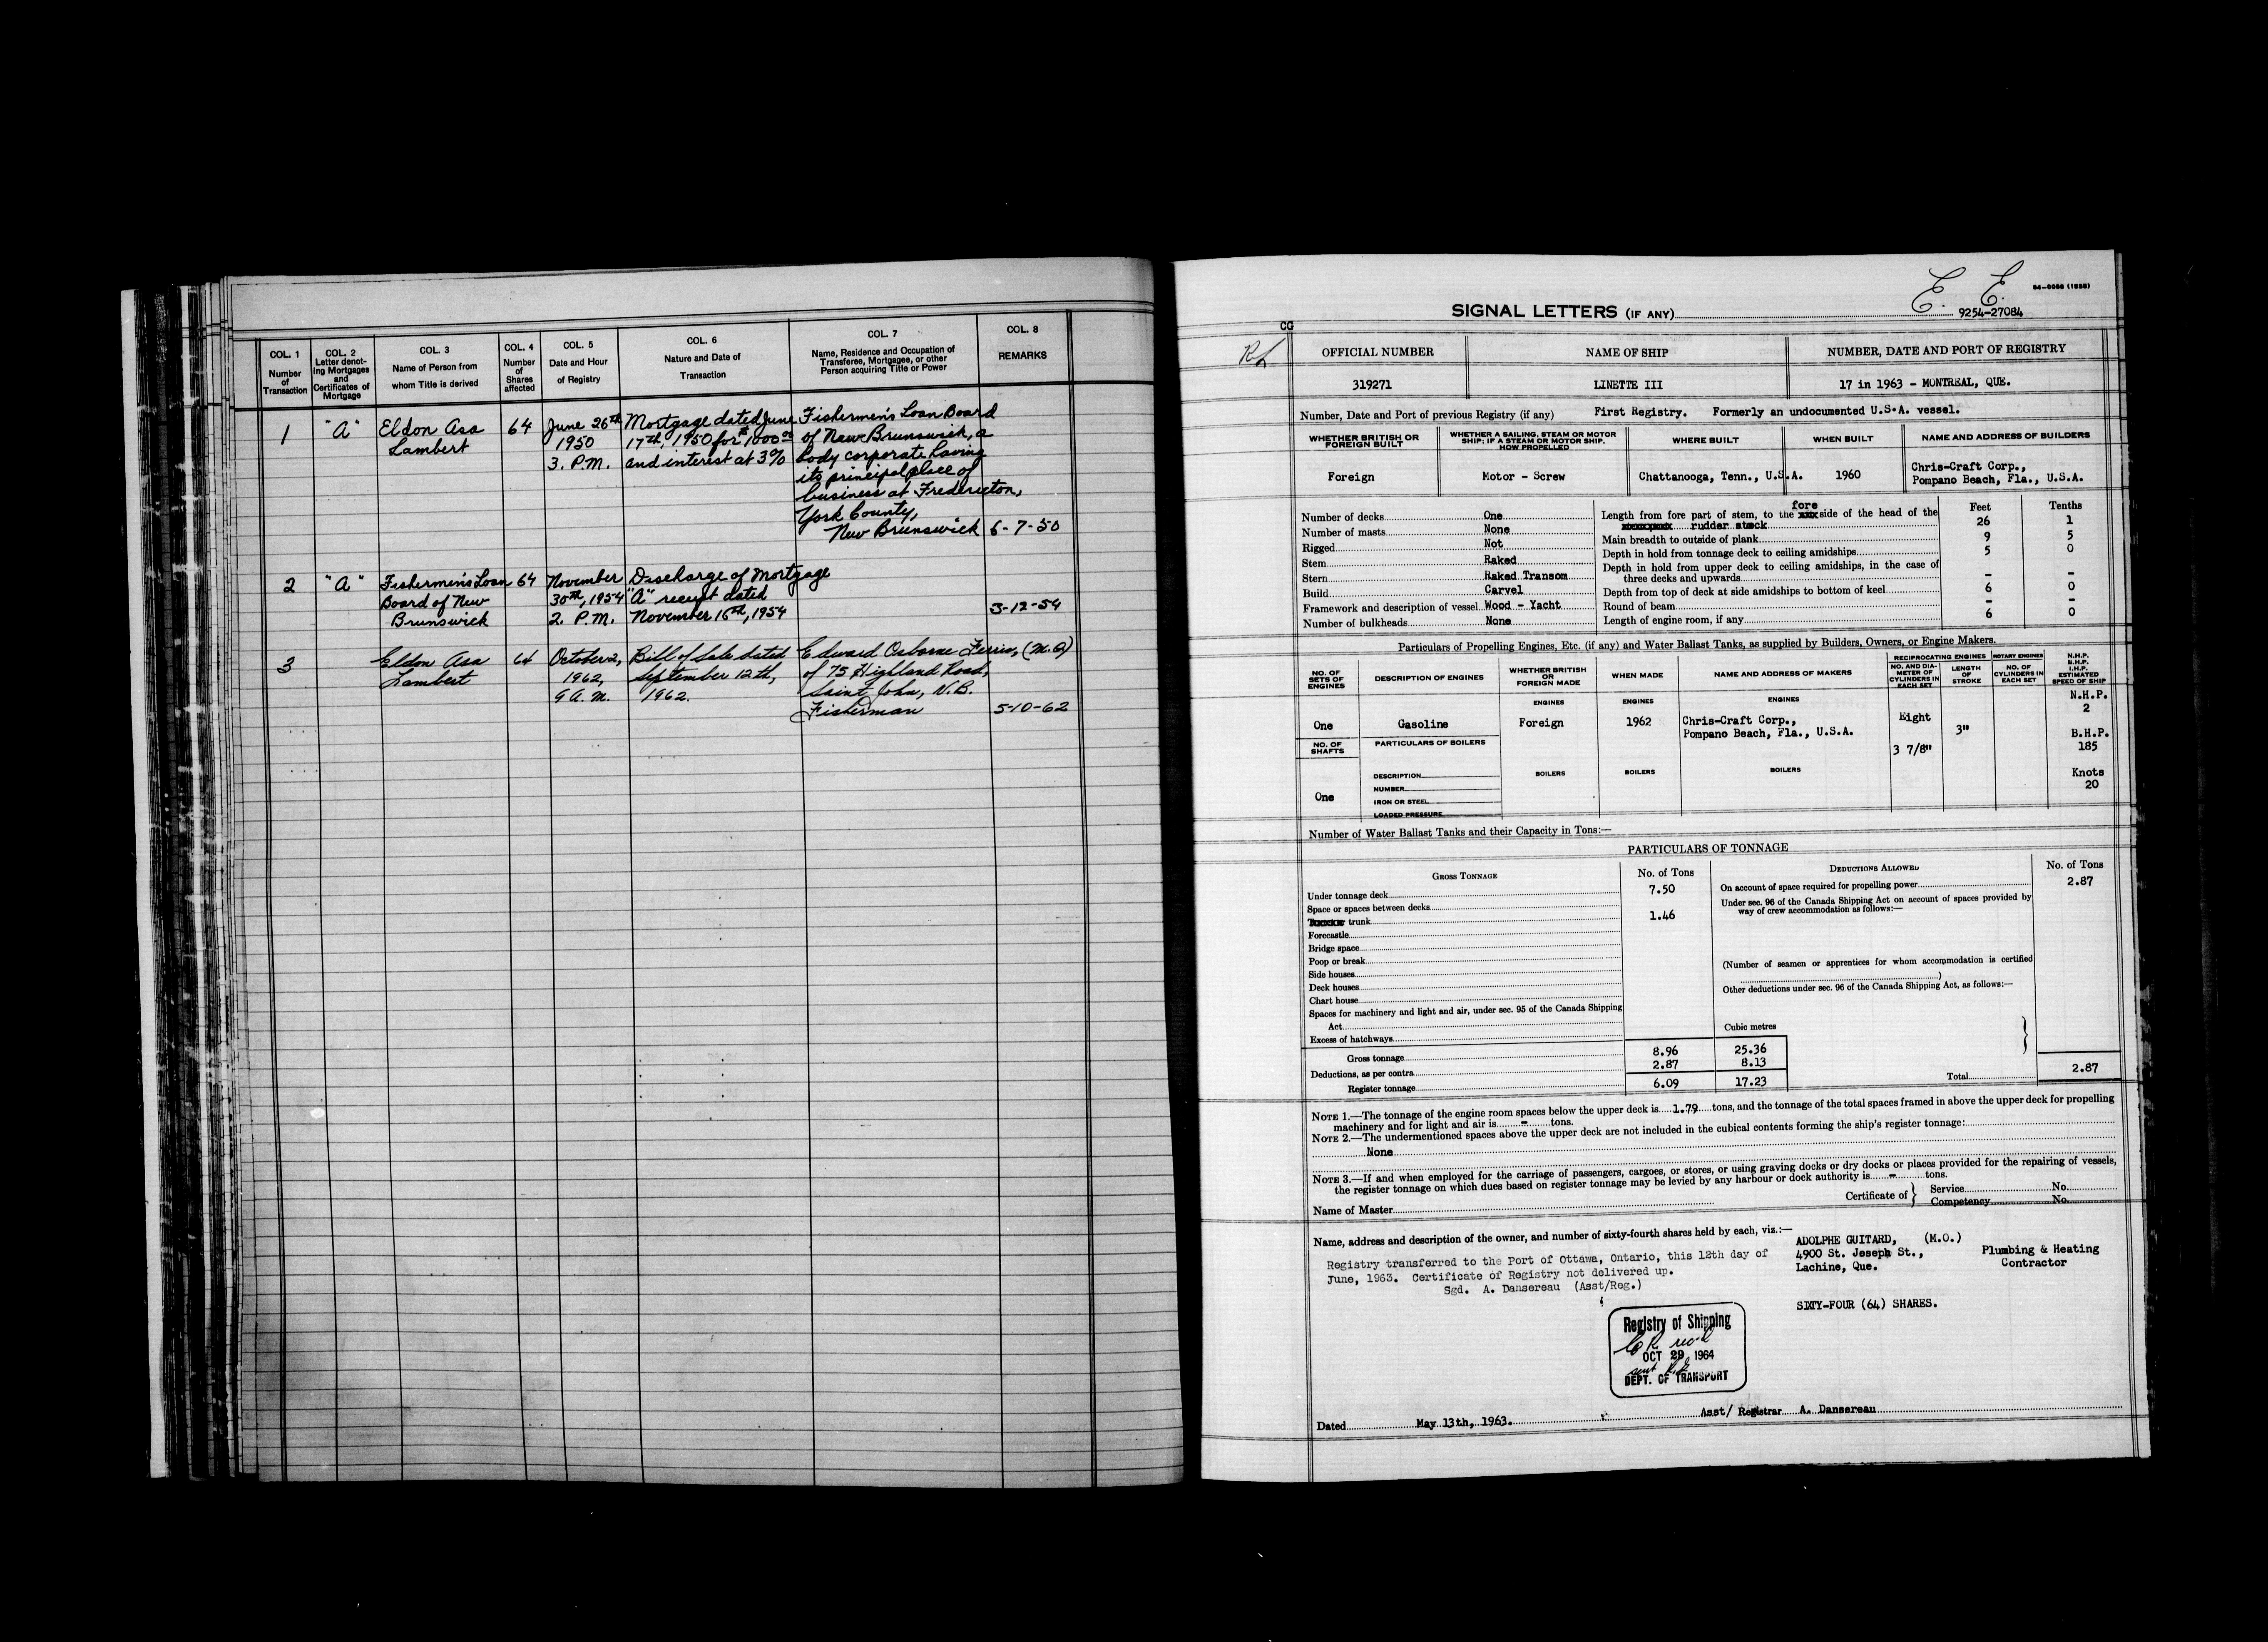 COL. 1
Number
of
Transaction
COL. 2
Letter denot-
ing Mortgages
and
Certificates of
Mortgage
COL. 3
Name of Person from
whom Title is derived
COL. 4
Number
of
Shares
affected
COL. 5
Date and Hour
of Registry
COL. 6
Nature and Date of
Transaction
COL. 7
Name, Residence and Occupation of
Transferee, Mortgagee, or other
Person acquiring Title or Power
COL. 8
REMARKS
1 "A" Eldon Asa 64 June 26th Mortgage dated June Fishermen's Loan Board
Lambert 1950 17th, 1950 for $1000.00 of New Brunswick, a
3. P.M. and interest at 3% body corporate having
its principal place of
business at Fredericton,
York County,
New Brunswick 6-7-50
2 "A" Fishermen's Loan 64 November Discharge of Mortgage
Board of New 30th, 1954 "A" receipt dated
Brunswick 2. P.M. November 16th, 1954 3-12-54
3 Eldon Asa 64 October 2, Bill of Sale dated Edward Osborne Ferris, (M.O)
Lambert 1962, September 12th, of 75 Highland Road,
9 A.M. 1962. Saint John, N.B.
Fisherman 5-10-62
E. E.
64-0086 (1955)
SIGNAL LETTERS (IF ANY) 9254-27084
CG
OFFICIAL NUMBER NAME OF SHIP NUMBER, DATE AND PORT OF REGISTRY
319271 LINETTE III 17 in 1963 - MONTREAL, QUE.
Number, Date and Port of previous Registry (if any) First Registry. Formerly an undocumented U.S.A. vessel.
WHETHER BRITISH OR
FOREIGN BUILT
WHETHER A SAILING, STEAM OR MOTOR
SHIP; IF A STEAM OR MOTOR SHIP,
HOW PROPELLED
WHERE BUILT
WHEN BUILT
NAME AND ADDRESS OF BUILDERS
Foreign Motor - Screw Chattanooga, Tenn., U.S.A. 1960 Chris-Craft Corp.,
Pompano Beach, Fla., U.S.A.
Feet Tenths
Number of decks One
Number of masts None
Rigged Not
Stem Raked
Stern Raked Transom
Build Carvel
Framework and description of vessel Wood - Yacht
Number of bulkheads None
fore
Length from fore part of stem, to the xxx side of the head of the
rudder stock 26 1
Main breadth to outside of plank 9 5
Depth in hold from tonnage deck to ceiling amidships 5 0
Depth in hold from upper deck to ceiling amidships, in the case of
three decks and upwards - -
Depth from top of deck at side amidships to bottom of keel 6 0
Round of beam - -
Length of engine room, if any 6 0
Particulars of Propelling Engines, Etc. (if any) and Water Ballast Tanks, as supplied by Builders, Owners, or Engine Makers.
NO. OF
SETS OF
ENGINES
DESCRIPTION OF ENGINES
WHETHER BRITISH
OR
FOREIGN MADE
WHEN MADE
NAME AND ADDRESS OF MAKERS
RECIPROCATING ENGINES
NO. AND DIA-
METER OF
CYLINDERS IN
EACH SET
LENGTH
OF
STROKE
ROTARY ENGINES
NO. OF
CYLINDERS IN
EACH SET
N.H.P.
B.H.P.
I.H.P.
ESTIMATED
SPEED OF SHIP
ENGINES ENGINES ENGINES
N.H.P.
2
One Gasoline Foreign 1962 Chris-Craft Corp., Eight
Pompano Beach, Fla., U.S.A. 3"
B.H.P.
3 7/8" 185
NO. OF
SHAFTS
PARTICULARS OF BOILERS
BOILERS BOILERS BOILERS
Knots
20
One
DESCRIPTION
NUMBER
IRON OR STEEL
LOADED PRESSURE
Number of Water Ballast Tanks and their Capacity in Tons:—
PARTICULARS OF TONNAGE
GROSS TONNAGE No. of Tons
Under tonnage deck 7.50
Space or spaces between decks
trunk 1.46
Forecastle
Bridge space
Poop or break
Side houses
Deck houses
Chart house
Spaces for machinery and light and air, under sec. 95 of the Canada Shipping
Act
Excess of hatchways
Cubic metres
Gross tonnage 8.96 25.36
Deductions, as per contra 2.87 8.13
Register tonnage 6.09 17.23
DEDUCTIONS ALLOWED No. of Tons
On account of space required for propelling power 2.87
Under sec. 96 of the Canada Shipping Act on account of spaces provided by
way of crew accommodation as follows:—
(Number of seamen or apprentices for whom accommodation is certified
)
Other deductions under sec. 96 of the Canada Shipping Act, as follows:—
Total 2.87
NOTE 1.—The tonnage of the engine room spaces below the upper deck is 1.79 tons, and the tonnage of the total spaces framed in above the upper deck for propelling
machinery and for light and air is - tons.
NOTE 2.—The undermentioned spaces above the upper deck are not included in the cubical contents forming the ship's register tonnage:
None
NOTE 3.—If and when employed for the carriage of passengers, cargoes, or stores, or using graving docks or dry docks or places provided for the repairing of vessels,
the register tonnage on which dues based on register tonnage may be levied by any harbour or dock authority is - tons.
Name of Master
Certificate of } Service No.
Competency No.
Name, address and description of the owner, and number of sixty-fourth shares held by each, viz.:—
ADOLPHE GUITARD, (M.O.)
4900 St. Joseph St.,
Lachine, Que.
Plumbing & Heating
Contractor
SIXTY-FOUR (64) SHARES.
Registry transferred to the Port of Ottawa, Ontario, this 12th day of
June, 1963. Certificate of Registry not delivered up.
Sgd. A. Dansereau (Asst/Reg.)
Registry of Shipping
OCT 29 1964
DEPT. OF TRANSPORT
Dated May 13th, 1963. Asst/ Registrar A. Dansereau